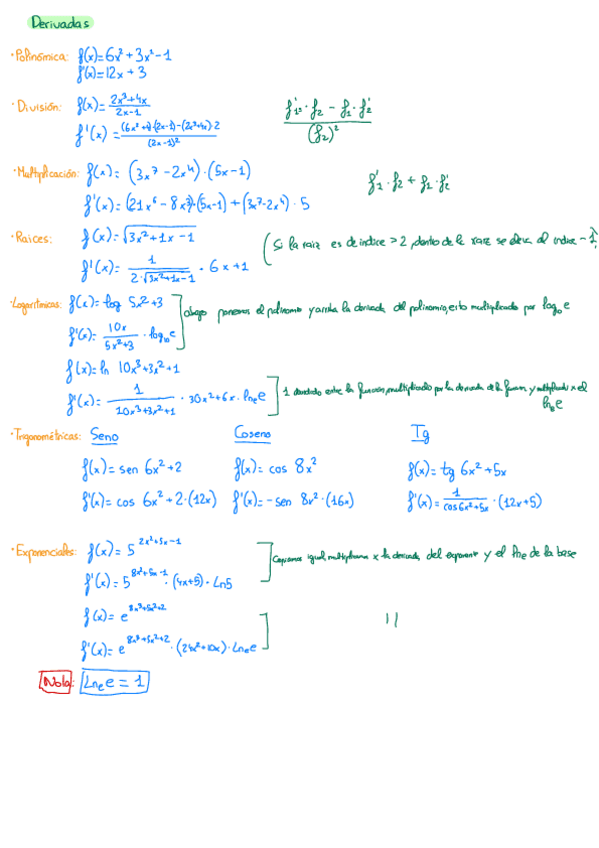 Derivadas
· Polinómica: f(x)=6x²+3x²-1
f'(x)=12x+3
· División: f(x)= (2x³+4x)/(2x-1)
f'(x) = ((6x²+4)·(2x-1)-(2x³+4x)·2)/(2x-1)²
(f'₁·f₂ - f₁·f'₂)/(f₂)²
· Multiplicación: f(x)= (3x⁷-2x⁴)·(5x-1)
f'(x)= (21x⁶-8x³)·(5x-1)+(3x⁷-2x⁴)·5
f'₁·f₂ + f₁·f'₂
· Raíces: f(x)=√(3x²+1x-1)
f'(x)= 1/(2·√(3x²+1x-1)) · 6x+1
(Si la raiz es de indice >2, dentro de la raiz se eleva al indice -1)
· Logarítmicas: f(x)=log 5x²+3
f'(x)= 10x/(5x²+3) · log₁₀e
abajo ponemos el polinomio y arriba la derivada del polinomio, esto multiplicado por log₁₀e
f(x)= ln 10x³+3x²+1
f'(x)= 1/(10x³+3x²+1) · 30x²+6x · lnₑe
1 dividido entre la funcion, multiplicado por la derivada de la funcion y multiplicado x el lnₑe
· Trigonométricas: Seno Coseno Tg
f(x)= sen 6x²+2 f(x)= cos 8x² f(x)= tg 6x²+5x
f'(x)= cos 6x²+2·(12x) f'(x)=-sen 8x²·(16x) f'(x)= 1/(cos 6x²+5x) ·(12x+5)
· Exponenciales: f(x)= 5^(2x²+5x-1)
f'(x)= 5^(8x²+5x-1)·(4x+5)·Ln5
Copiamos igual, multiplicamos x la derivada del exponente y el Ane de la base
f(x)= e^(8x³+5x²+2)
f'(x)= e^(8x³+5x²+2)·(24x²+10x)·Lnₑe
||
Nota: Lnₑe = 1